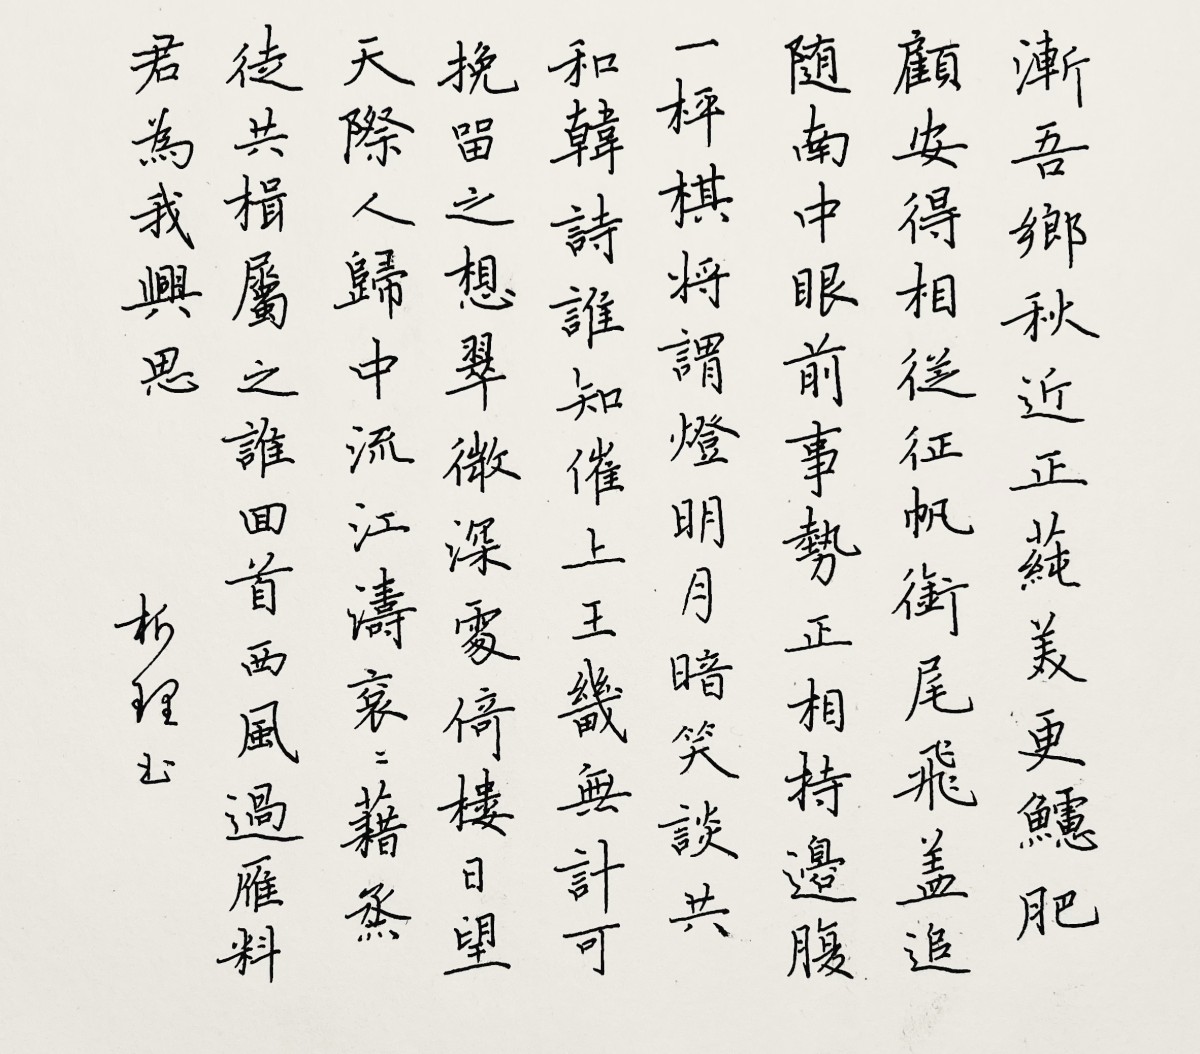 漸吾鄉秋近正蒓美更鱸肥
顧安得相從征帆銜尾飛盖追
随南中眼前事勢正相持邊腹
一枰棋将謂燈明月暗笑談共
和韓詩誰知催上王畿無計可
挽留之想翠微深處倚樓日望
天際人歸中流江濤衮〻藉烝
徒共楫屬之誰回首西風過雁料
君為我興思
析理书